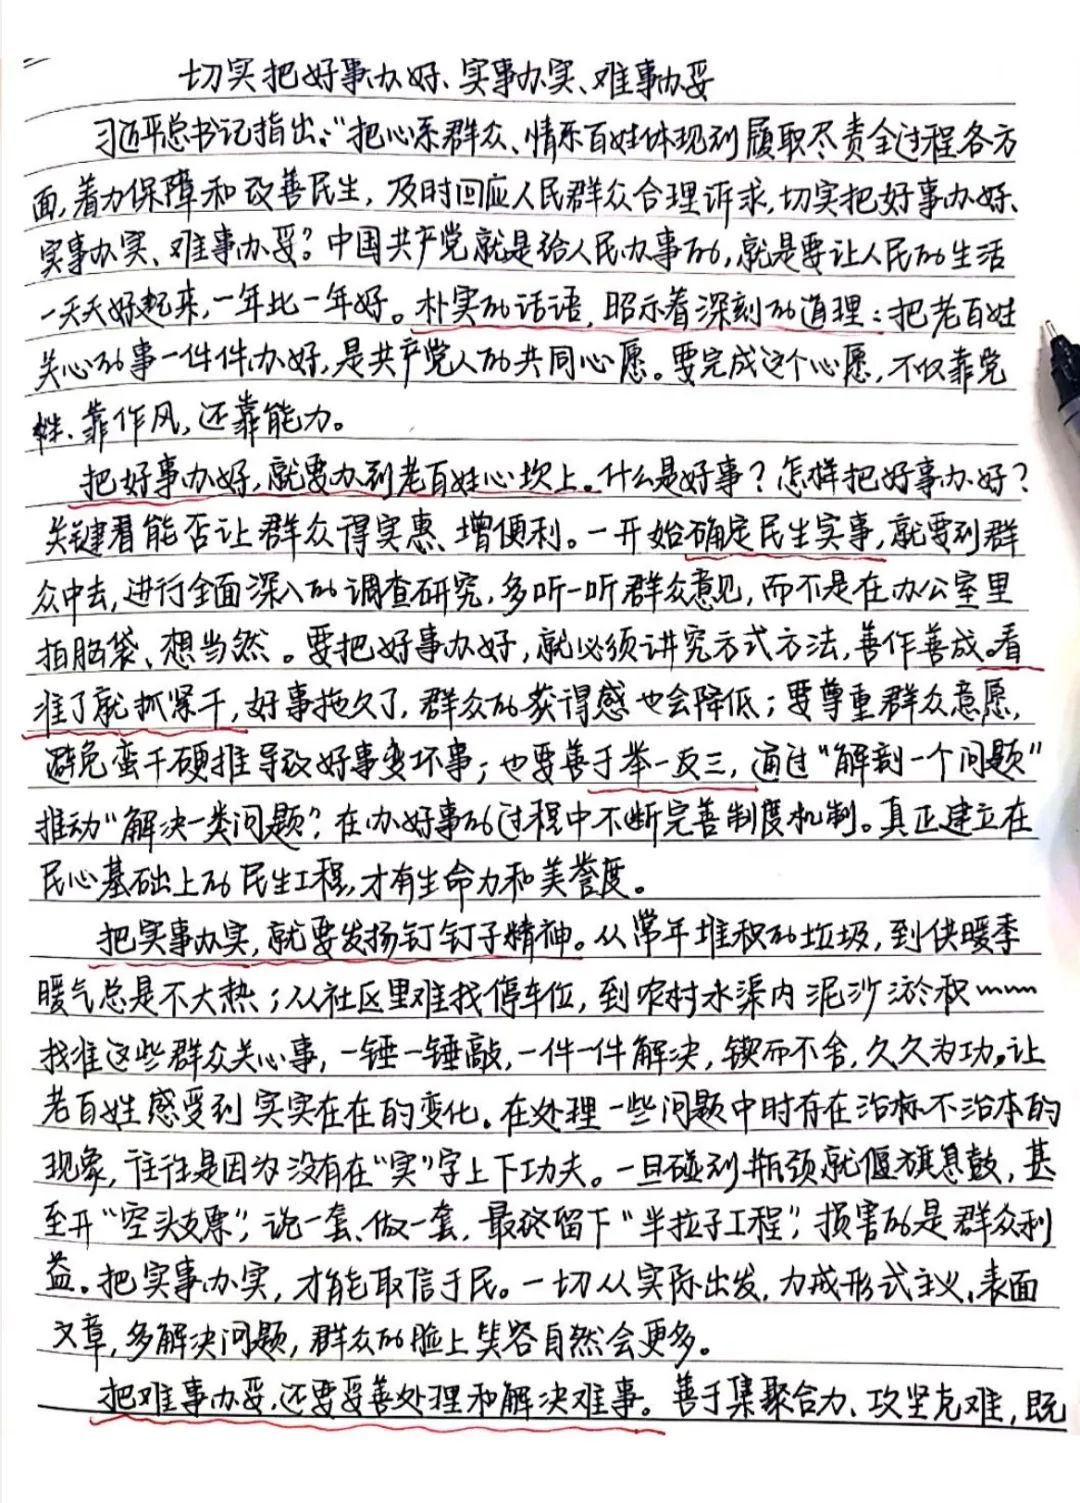 切实把好事办好、实事办实、难事办妥
习近平总书记指出:“把心系群众、情系百姓体现到履职尽责全过程各方
面,着力保障和改善民生,及时回应人民群众合理诉求,切实把好事办好、
实事办实、难事办妥”中国共产党就是给人民办事的,就是要让人民的生活
一天天好起来,一年比一年好。朴实的话语,昭示着深刻的道理:把老百姓
关心的事一件件办好,是共产党人的共同心愿。要完成这个心愿,不仅靠党
性、靠作风,还靠能力。
把好事办好,就要办到老百姓心坎上。什么是好事?怎样把好事办好?
关键看能否让群众得实惠、增便利。一开始确定民生实事,就要到群
众中去,进行全面深入的调查研究,多听一听群众意见,而不是在办公室里
拍脑袋、想当然。要把好事办好,就必须讲究方式方法,善作善成。看
准了就抓紧干,好事拖久了,群众的获得感也会降低;要尊重群众意愿,
避免蛮干硬推导致好事变坏事;也要善于举一反三,通过“解剖一个问题”
推动“解决一类问题”在办好事的过程中不断完善制度机制。真正建立在
民心基础上的民生工程,才有生命力和美誉度。
把实事办实,就要发扬钉钉子精神。从常年堆积的垃圾,到供暖季
暖气总是不大热;从社区里难找停车位,到农村水渠内泥沙淤积……
找准这些群众关心事,一锤一锤敲,一件一件解决,锲而不舍,久久为功,让
老百姓感受到实实在在的变化。在处理一些问题中时有存在治标不治本的
现象,往往是因为没有在“实”字上下功夫。一旦碰到瓶颈就偃旗息鼓,甚
至开“空头支票”,说一套、做一套,最终留下“半拉子工程”,损害的是群众利
益。把实事办实,才能取信于民。一切从实际出发,力戒形式主义、表面
文章,多解决问题,群众的脸上笑容自然会更多。
把难事办妥,还要妥善处理和解决难事。善于集聚合力、攻坚克难,既